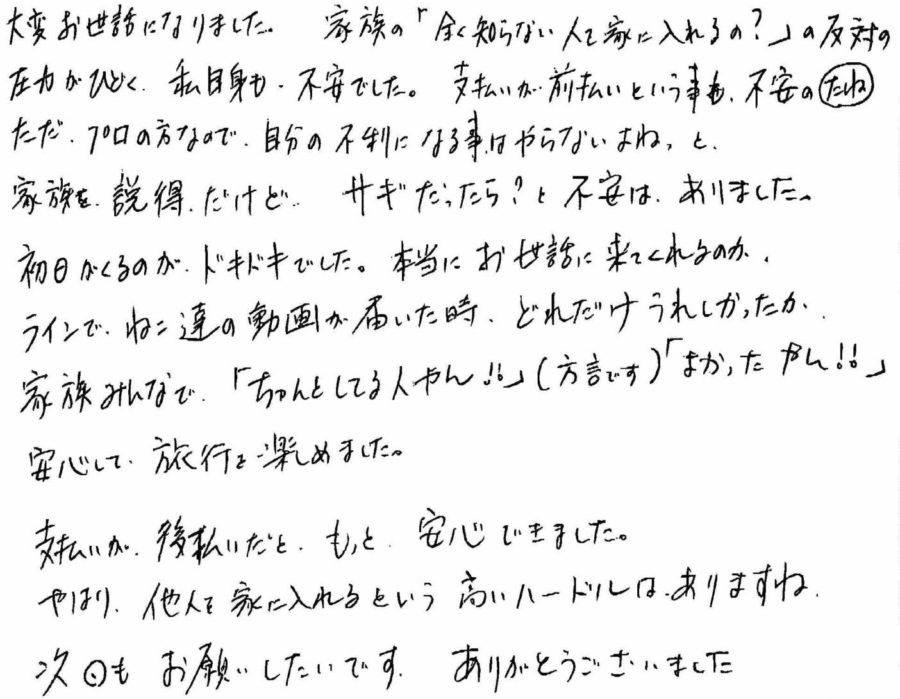 大変お世話になりました。 家族の「全く知らない人を家に入れるの?」の反対の
圧力がひどく、私自身も、不安でした。 支払いが前払いという事も、不安のたね
ただ、プロの方なので、自分の不利になる事はやらないよね、と、
家族を説得、だけど、 サギだったら?と不安は、ありました。
初日がくるのが、ドキドキでした。本当にお世話に来てくれるのか、
ラインで、ねこ達の動画が届いた時、どれだけうれしかったか、
家族みんなで、「ちゃんとしてる人やん!!」(方言です)「よかったやん!!」
安心して、旅行を楽しめました。
支払いが、後払いだと、もっと、安心できました。
やはり、他人を家に入れるという高いハードルは、ありますね、
次回もお願いしたいです、 ありがとうございました